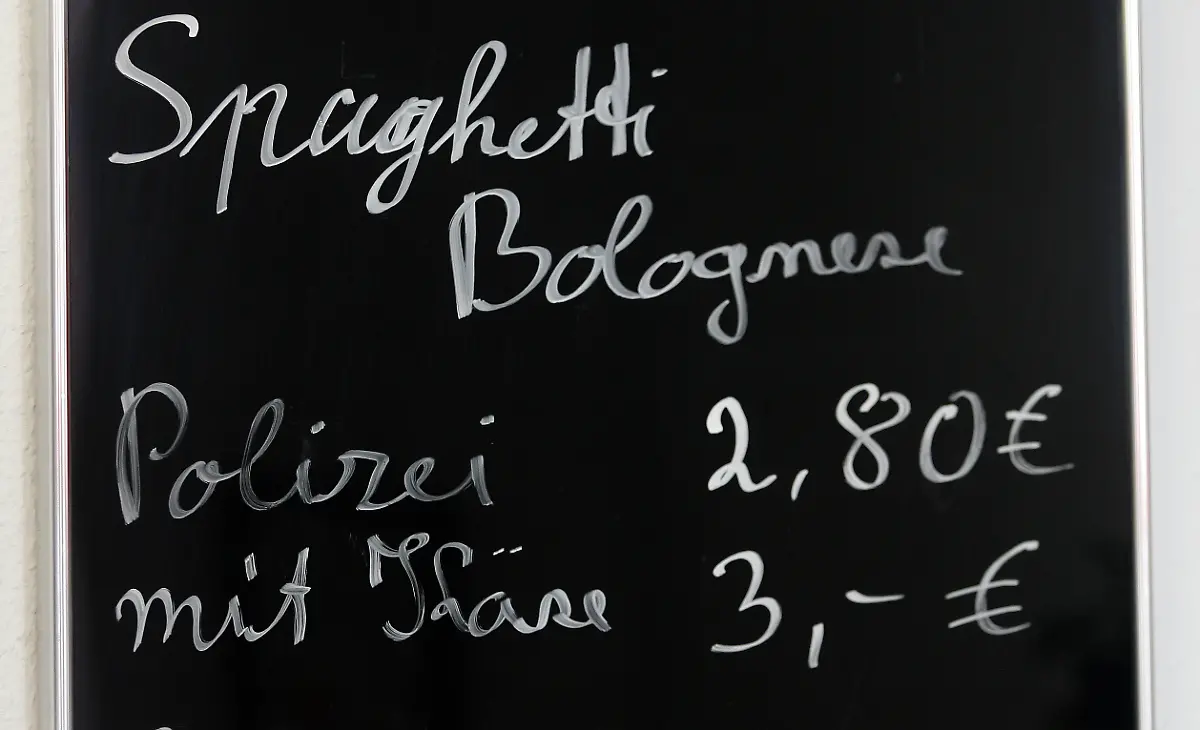 Spaghetti
Bolognese
Polizei 2,80€
mit Käse 3,- €